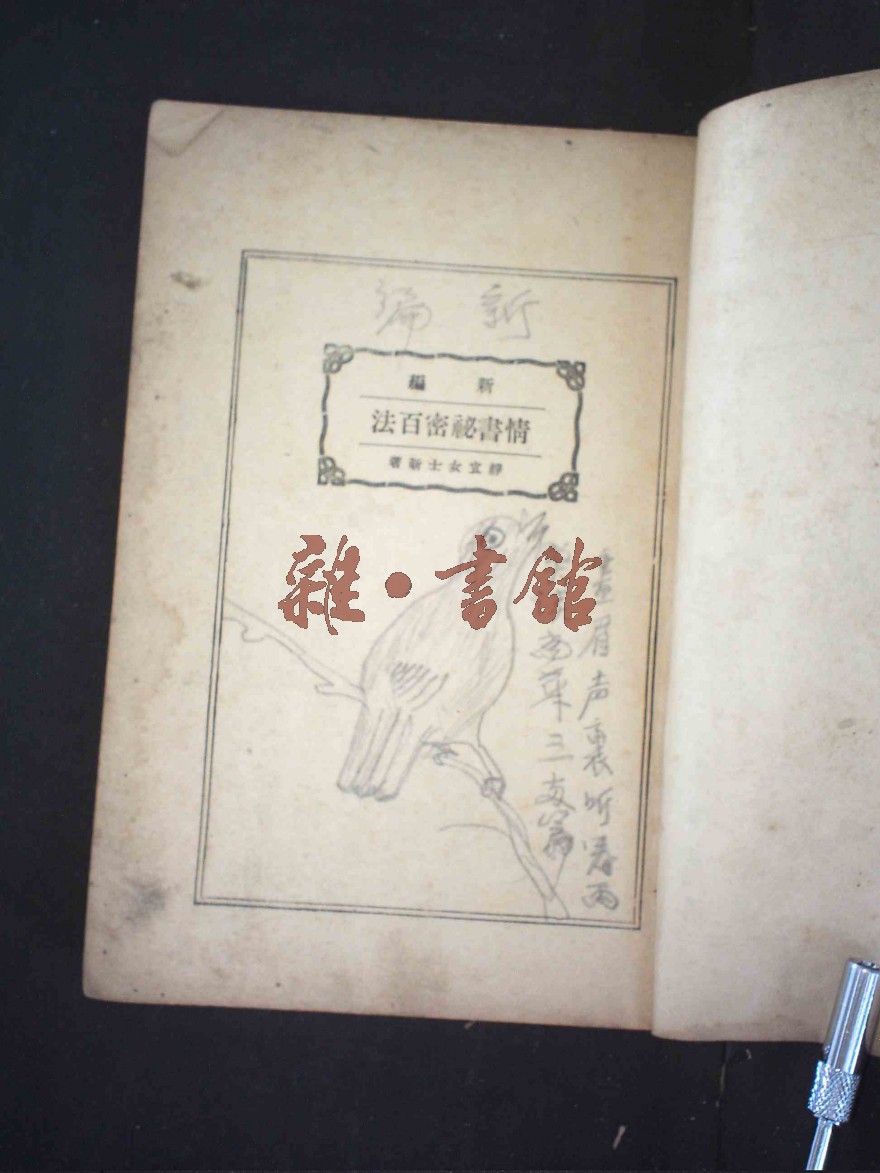 新編
新編
情書祕密百法
靜宜女士新著
雜·書館
画眉声裏听春雨
三友篇